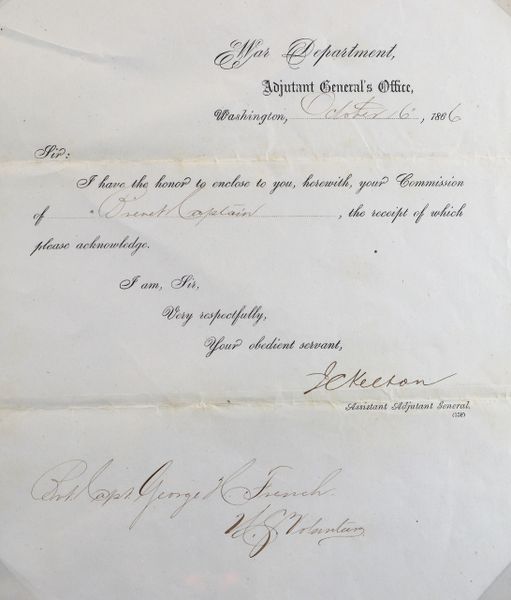 War Department,
Adjutant General's Office,
Washington, October 16, 1866
Sir:
I have the honor to enclose to you, herewith, your Commission
of Brevet Captain, the receipt of which
please acknowledge.
I am, Sir,
Very respectfully,
Your obedient servant,
J C Kelton
Assistant Adjutant General.
Bvt Capt George H French
U S Volunteers